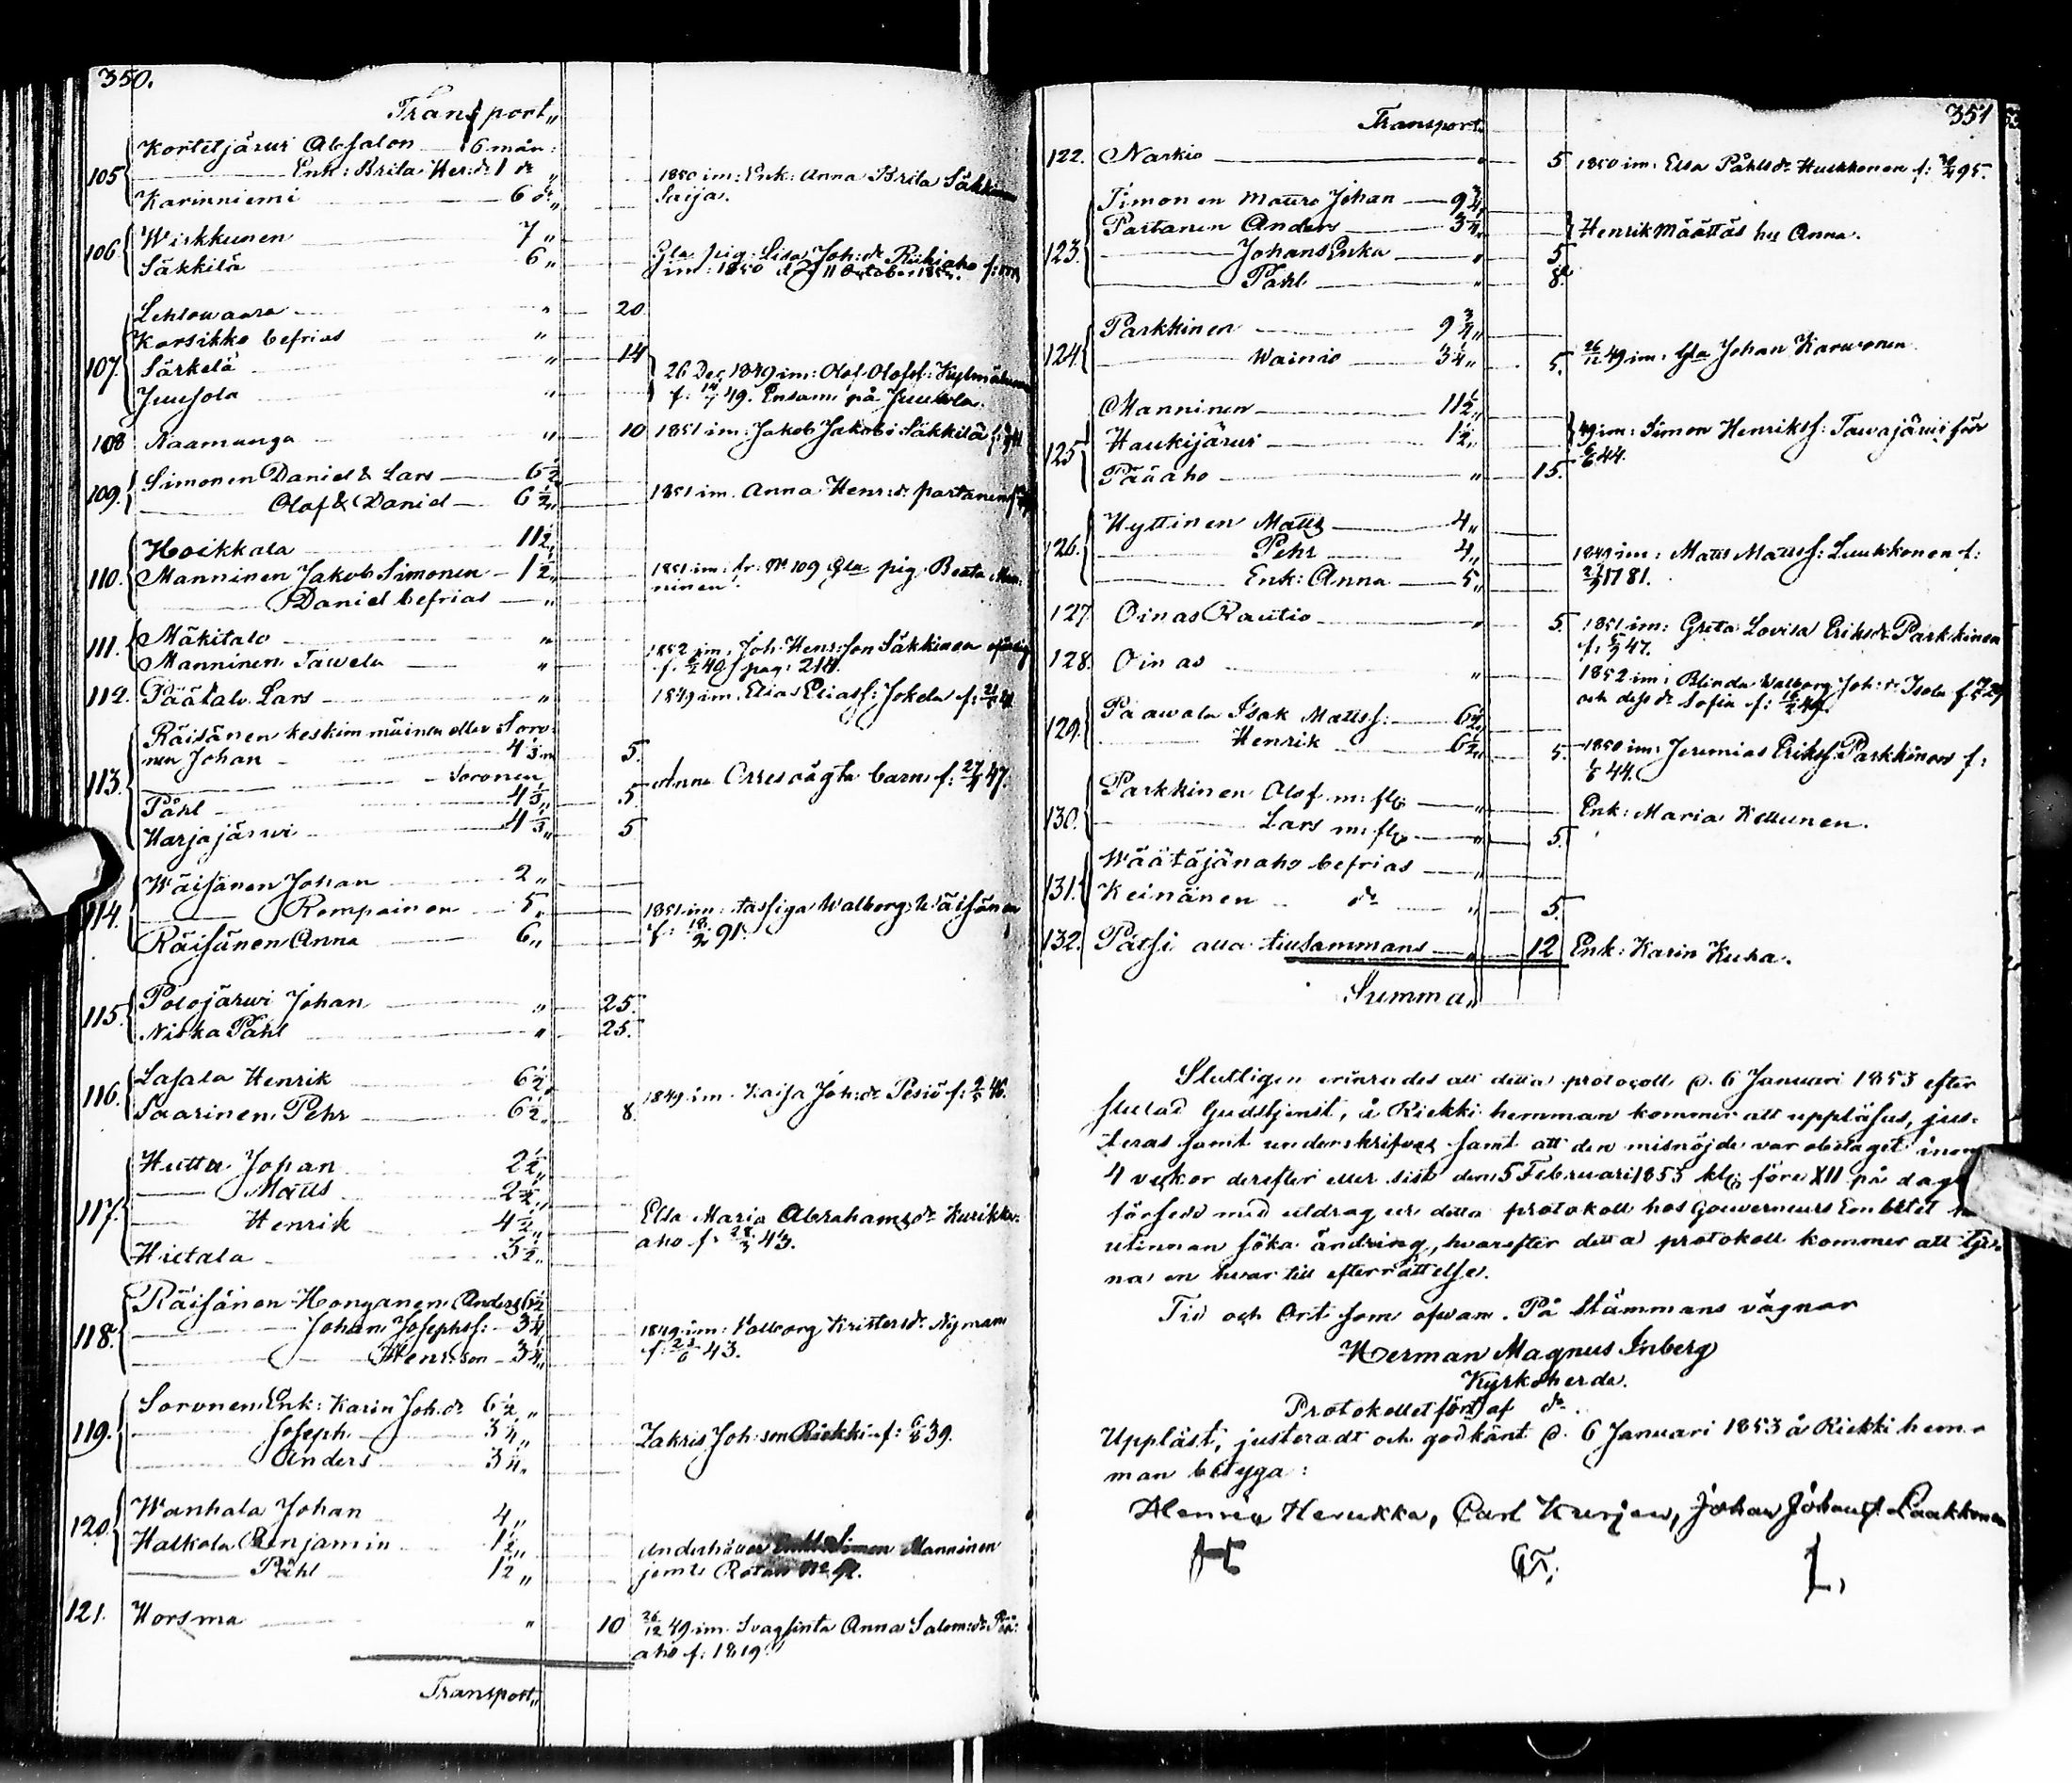 350.
Transport „
Kortetjärvi Abfalon — 6 mån:
105 Enk: Brita Her: dr 1 dr „
Karinniemi — 6 dr „
1850 im: Enk: Anna Brita Säkkinen
Saija.
106 Wirkkunen 7 „
Säkkilä 6 „
Gla pig: Lisa Joh: dr Riihiaho
im: 1850 d. 11 October 1852.
Lehtowaara „ 20
Korsikko befrias „
107. Särkelä „ 14
Juusola „
26 Dec. 1849 im: Olof Olofsf: Kylmäluoma
f: 49. Ensam på Juusola.
108 Naamanga „ 10 1851 im: Jakob Jakobs: Säkkilä
109. Simonen Daniel & Lars — 6½
Olof & Daniel — 6½ „
1851 im. Anna Henr: dr Partanen
Hoikkala 11½
110. Manninen Jakob Simonen — 1½ „
Daniel befrias — „
1851 im: fr: No 109 Gla pig. Beata Man-
ninen.
111. Mäkitalo „
Manninen Tawela „
1852 im. Joh. Henr:son Säkkinen
f. 40 pag: 214.
112. Päätalo Lars — „ 1849 im. Elias Eliasf: Jokela f:
Räisänen keskimmäinen eller Soro-
nen Johan 4⅓ 5.
113. Soronen
Påhl 4⅓ „ 5
Harjajärwi 4⅓ „ 5
Anna Orres oägta barn f: 47.
Wäisänen Johan 2 „
114. Kempainen 5 „
Räisänen Anna 6 „
1851 im: Walborg Wäisänen
f: 18/2 91.
115. Polojärwi Johan „ 25.
Niska Påhl „ 25.
116. Lasala Henrik 6½
Saarinen Pehr 6½ „ 8.
1849 im. Kaisa Joh: dr Pesiö f: 46.
Hutta Johan 2½ „
Matts 2½ „
117. Henrik 4½ „
Hietala 3½ „
Elsa Maria Abrahams dr Kurikka-
aho f: 43.
Räisänen Honganen Anders 6½
118. Johan Josephsf: 3¼
Henr:son — 3¼ „
1849 im: Walborg Kristers dr Nyman
f: 43.
Soronen Enk: Karin Joh. dr 6½ „
119. Joseph 3¼ „
Anders 3¼ „
Zakris Joh:son Riekki f: 39.
120. Wanhala Johan 4 „
Halkola Benjamin 1½ „
Påhl 1½ „
Underhåller Simon Manninen
jemte Rotan No
121. Horsma „ 10 26/12 49 im. Svagsinta Anna Salom: dr Pää-
aho f: 1819.
Transport „
351
Transport „
122. Narkio „ 5 1850 im: Elsa Påhls dr Huckkonen f: 95.
Timonen Matts Johan — 9¾
Partanen Anders — 3¼
123. Johans Enka — „ 5
Påhl — „ 8.
Henrik Määttäs hu Anna.
Parkkinen 9¾ „
124. Wainio 3¼ „ 5. 26/12 49 im: Gla Johan Karwonen
Manninen — 11½
125. Haukijärwi — 1½ „
Pääaho „ 15.
49 im: Simon Henriksf: Tawajärwi för
44.
Hyttinen Matts — 4 „
126. Pehr — 4 „
Enk: Anna — 5 „
1849 im: Matts Mattsf: Luukkonen f:
1781.
127. Oinas Rautio „ 5. 1851 im: Greta Lovisa Eriks dr Parkkinen
f: 47.
128. Oinas „ 1852 im: Blinda Walborg Joh: dr Isola f. 29
och dess dr Sofia f: 49.
129. Paawola Isak Mattsf: — 6½
Henrik 6½ „ 5.
1850 im: Jeremias Eriksf: Parkkinen f:
44.
Parkkinen Olof m: fl: — „
130. Lars m: fl: — „ 5.
Enk: Maria Kellunen.
Wäätäjänaho befrias — „
131. Keinänen dr — „ 5.
132. Pätsi alla tillsammans — „ 12 Enk: Karin Kuha.
Summa „
Slutligen erinrades att detta protocoll d. 6 Januari 1853 efter
slutad Gudstjenst, å Riekki hemman kommer att uppläsas, jus-
teras samt underskrifvas samt att den misnöjde var obetaget inom
4 veckor derefter eller sist den 5 Februari 1853 kl: före XII på dagen
försedd med utdrag ur detta protokoll hos Gouverneurs Embetet
utinnan söka ändring, hvarefter detta protokoll kommer att tje-
na en hvar till efterrättelse.
Tid och Ort som ofwan. På Stämmans vägnar
Herman Magnus Inberg
Kyrkoherde.
Protokollet fördt af dr.
Uppläst, justeradt och godkänt d. 6 Januari 1853 å Riekki hem-
man betyga:
Henrik Herukka, Carl Kurjen, Johan Johansf. Laakkonen